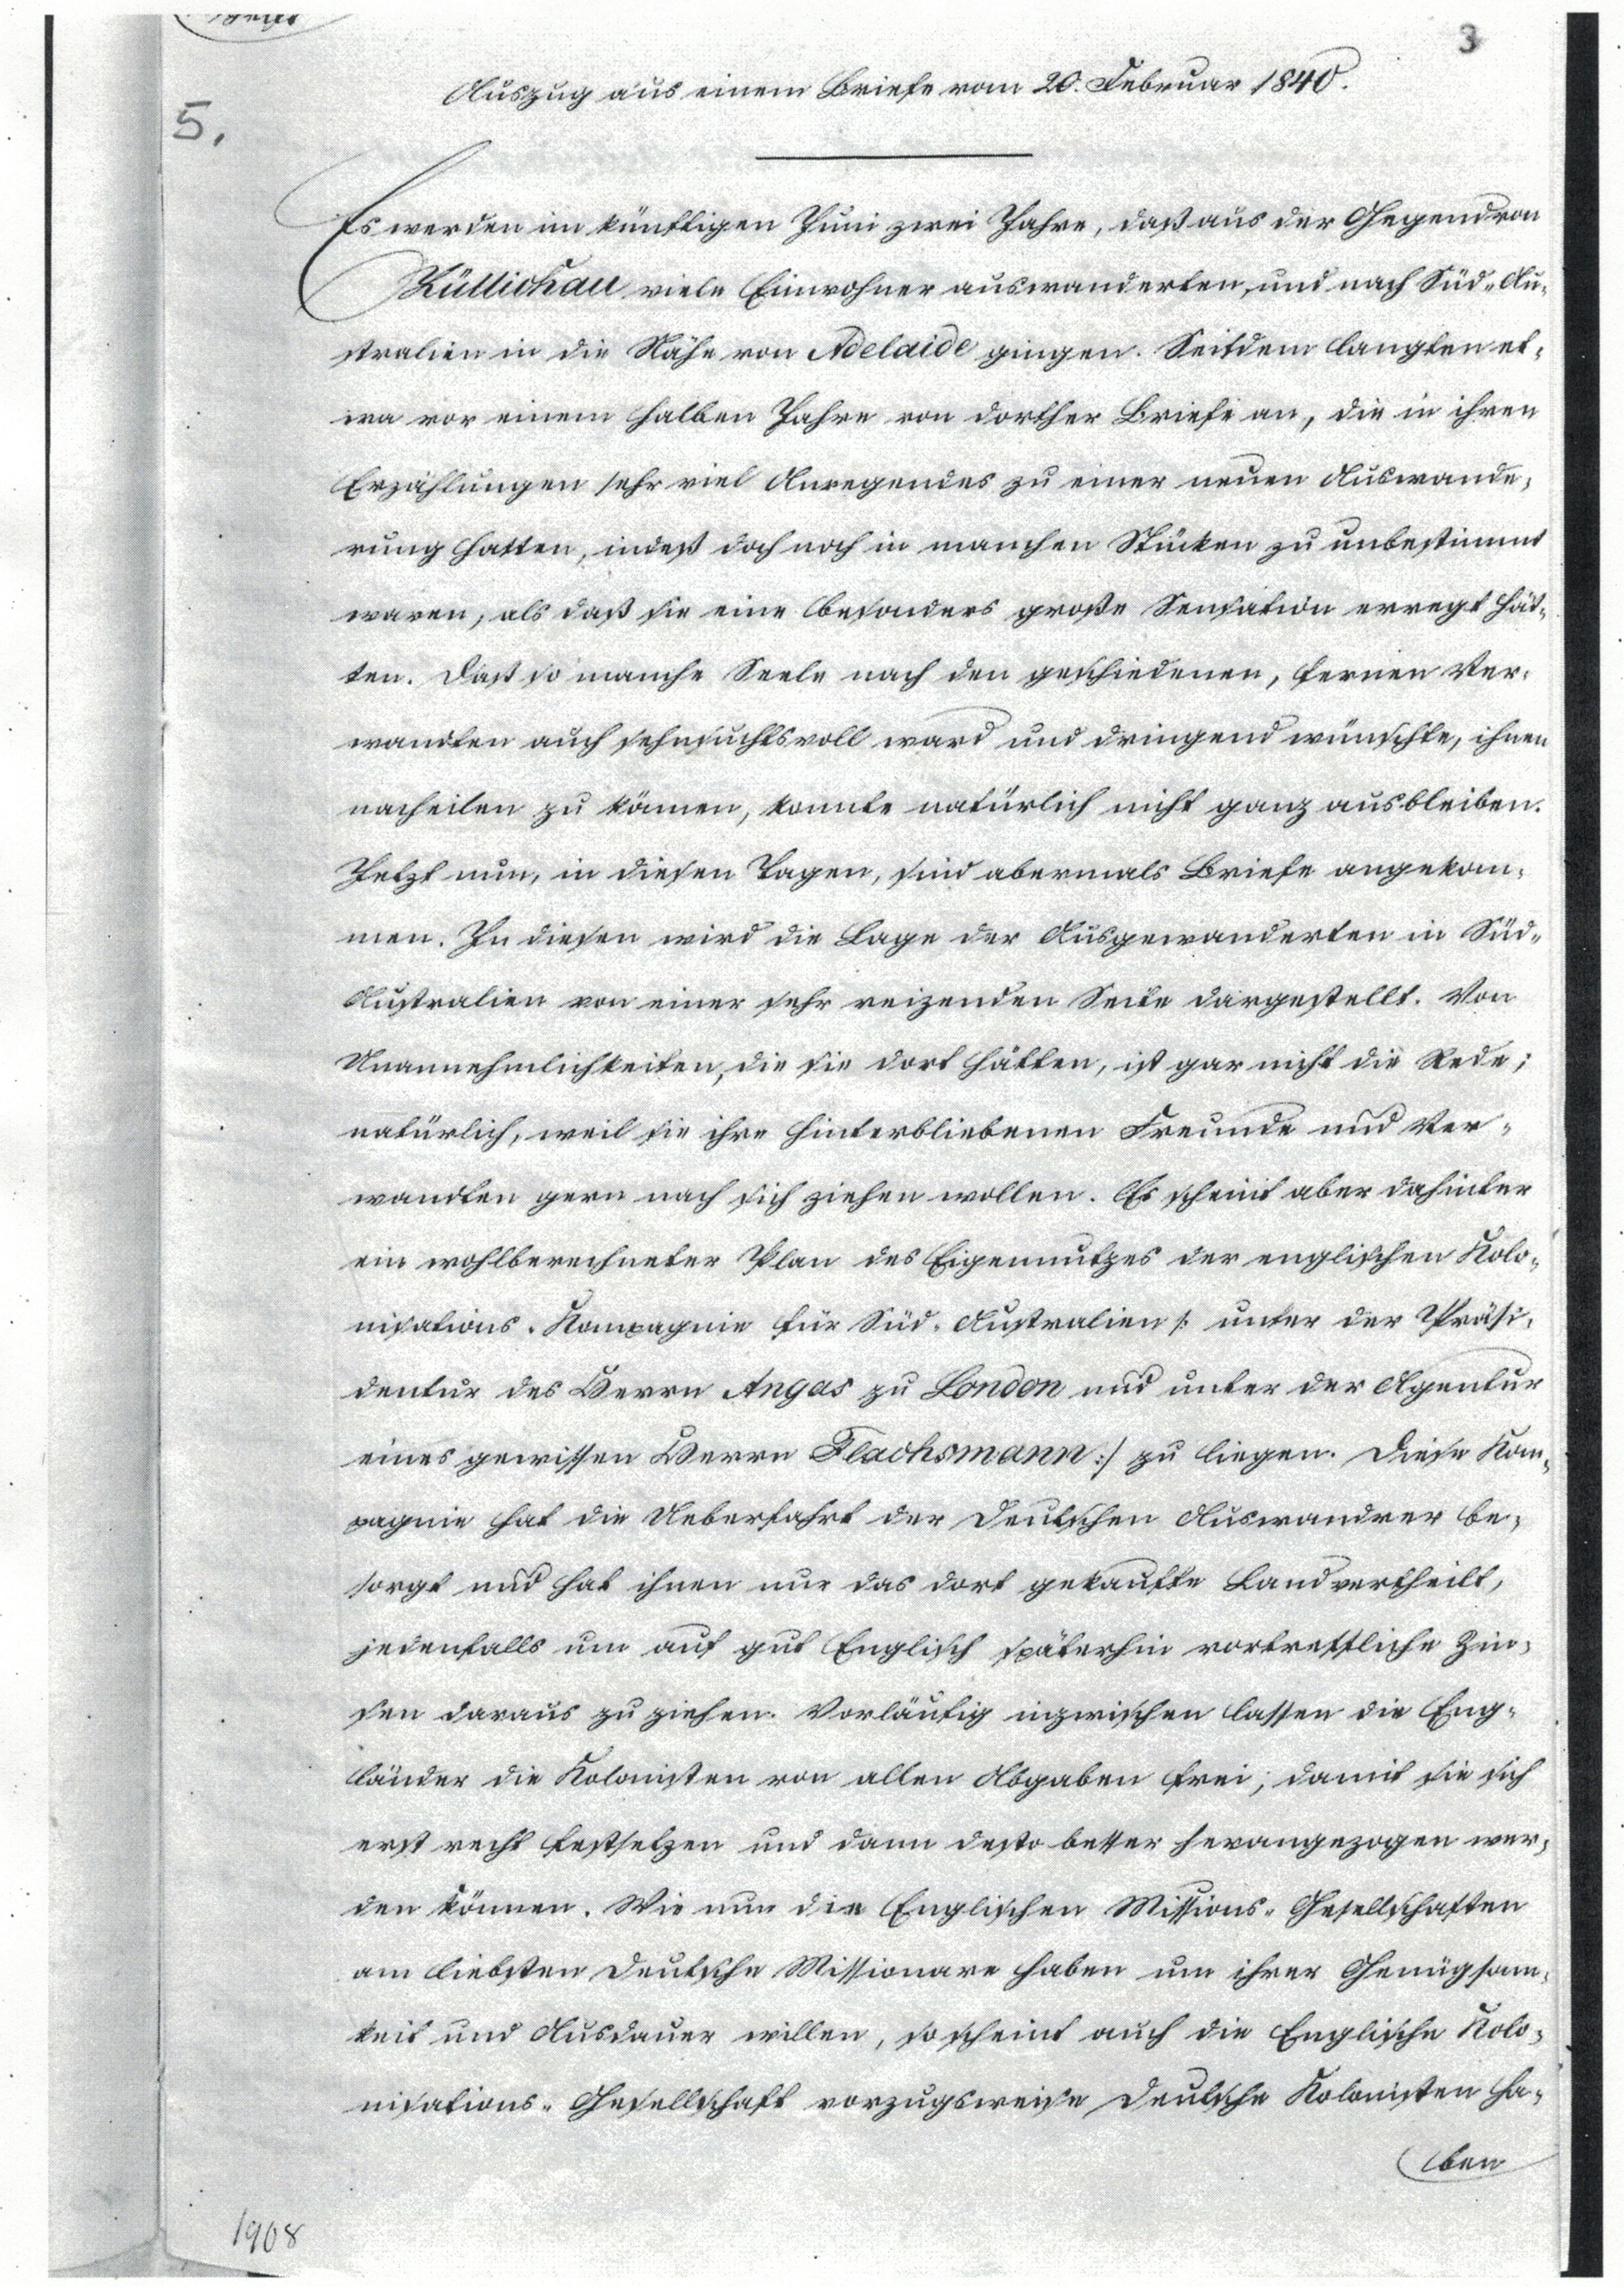 3
Auszug aus einem Briefe vom 20. Februar 1840.
5.
Es werden im künftigen Juni zwei Jahre, daß aus der Gegend von
Züllichau viele Einwohner auswanderten, und nach Süd-Au-
stralien in die Nähe von Adelaide gingen. Seitdem langten et-
wa vor einem halben Jahre von dorther Briefe an, die in ihren
Erzählungen sehr viel Anregendes zu einer neuen Auswande-
rung hatten, indeß doch noch in manchen Stücken zu unbestimmt
waren, als daß sie eine besonders große Sensation erregt hät-
ten. Daß so manche Seele nach den geschiedenen, fernen Ver-
wandten auch sehnsuchtsvoll ward und dringend wünschte, ihnen
nacheilen zu können, konnte natürlich nicht ganz ausbleiben.
Jetzt nun, in diesen Tagen, sind abermals Briefe angekom-
men. In diesen wird die Lage der Ausgewanderten in Süd-
Australien von einer sehr reizenden Seite dargestellt. Von
Unannehmlichkeiten, die sie dort hätten, ist gar nicht die Rede;
natürlich, weil sie ihre hinterbliebenen Freunde und Ver-
wandten gern nach sich ziehen wollen. Es scheint aber dahinter
ein wohlberechneter Plan des Eigennutzes der englischen Kolo-
nisations-Kompagnie für Süd-Australien /: unter der Präsi-
dentur des Herrn Angas zu London und unter der Agentur
eines gewissen Herrn Flachsmann :/ zu liegen. Diese Kom-
pagnie hat die Ueberfahrt der Deutschen Auswandrer be-
sorgt und hat ihnen nur das dort gekaufte Land vertheilt,
jedenfalls um auf gut Englisch späterhin vortreffliche Zin-
sen daraus zu ziehen. Vorläufig inzwischen lassen die Eng-
länder die Kolonisten von allen Abgaben frei; damit sie sich
erst recht festsetzen und dann desto besser herangezogen wer-
den können. Wie nun die Englischen Missions-Gesellschaften
am liebsten Deutsche Missionare haben um ihrer Genügsam-
keit und Ausdauer willen, so scheint auch die Englische Kolo-
nisations-Gesellschaft vorzugsweise Deutsche Kolonisten ha-
ben
1908